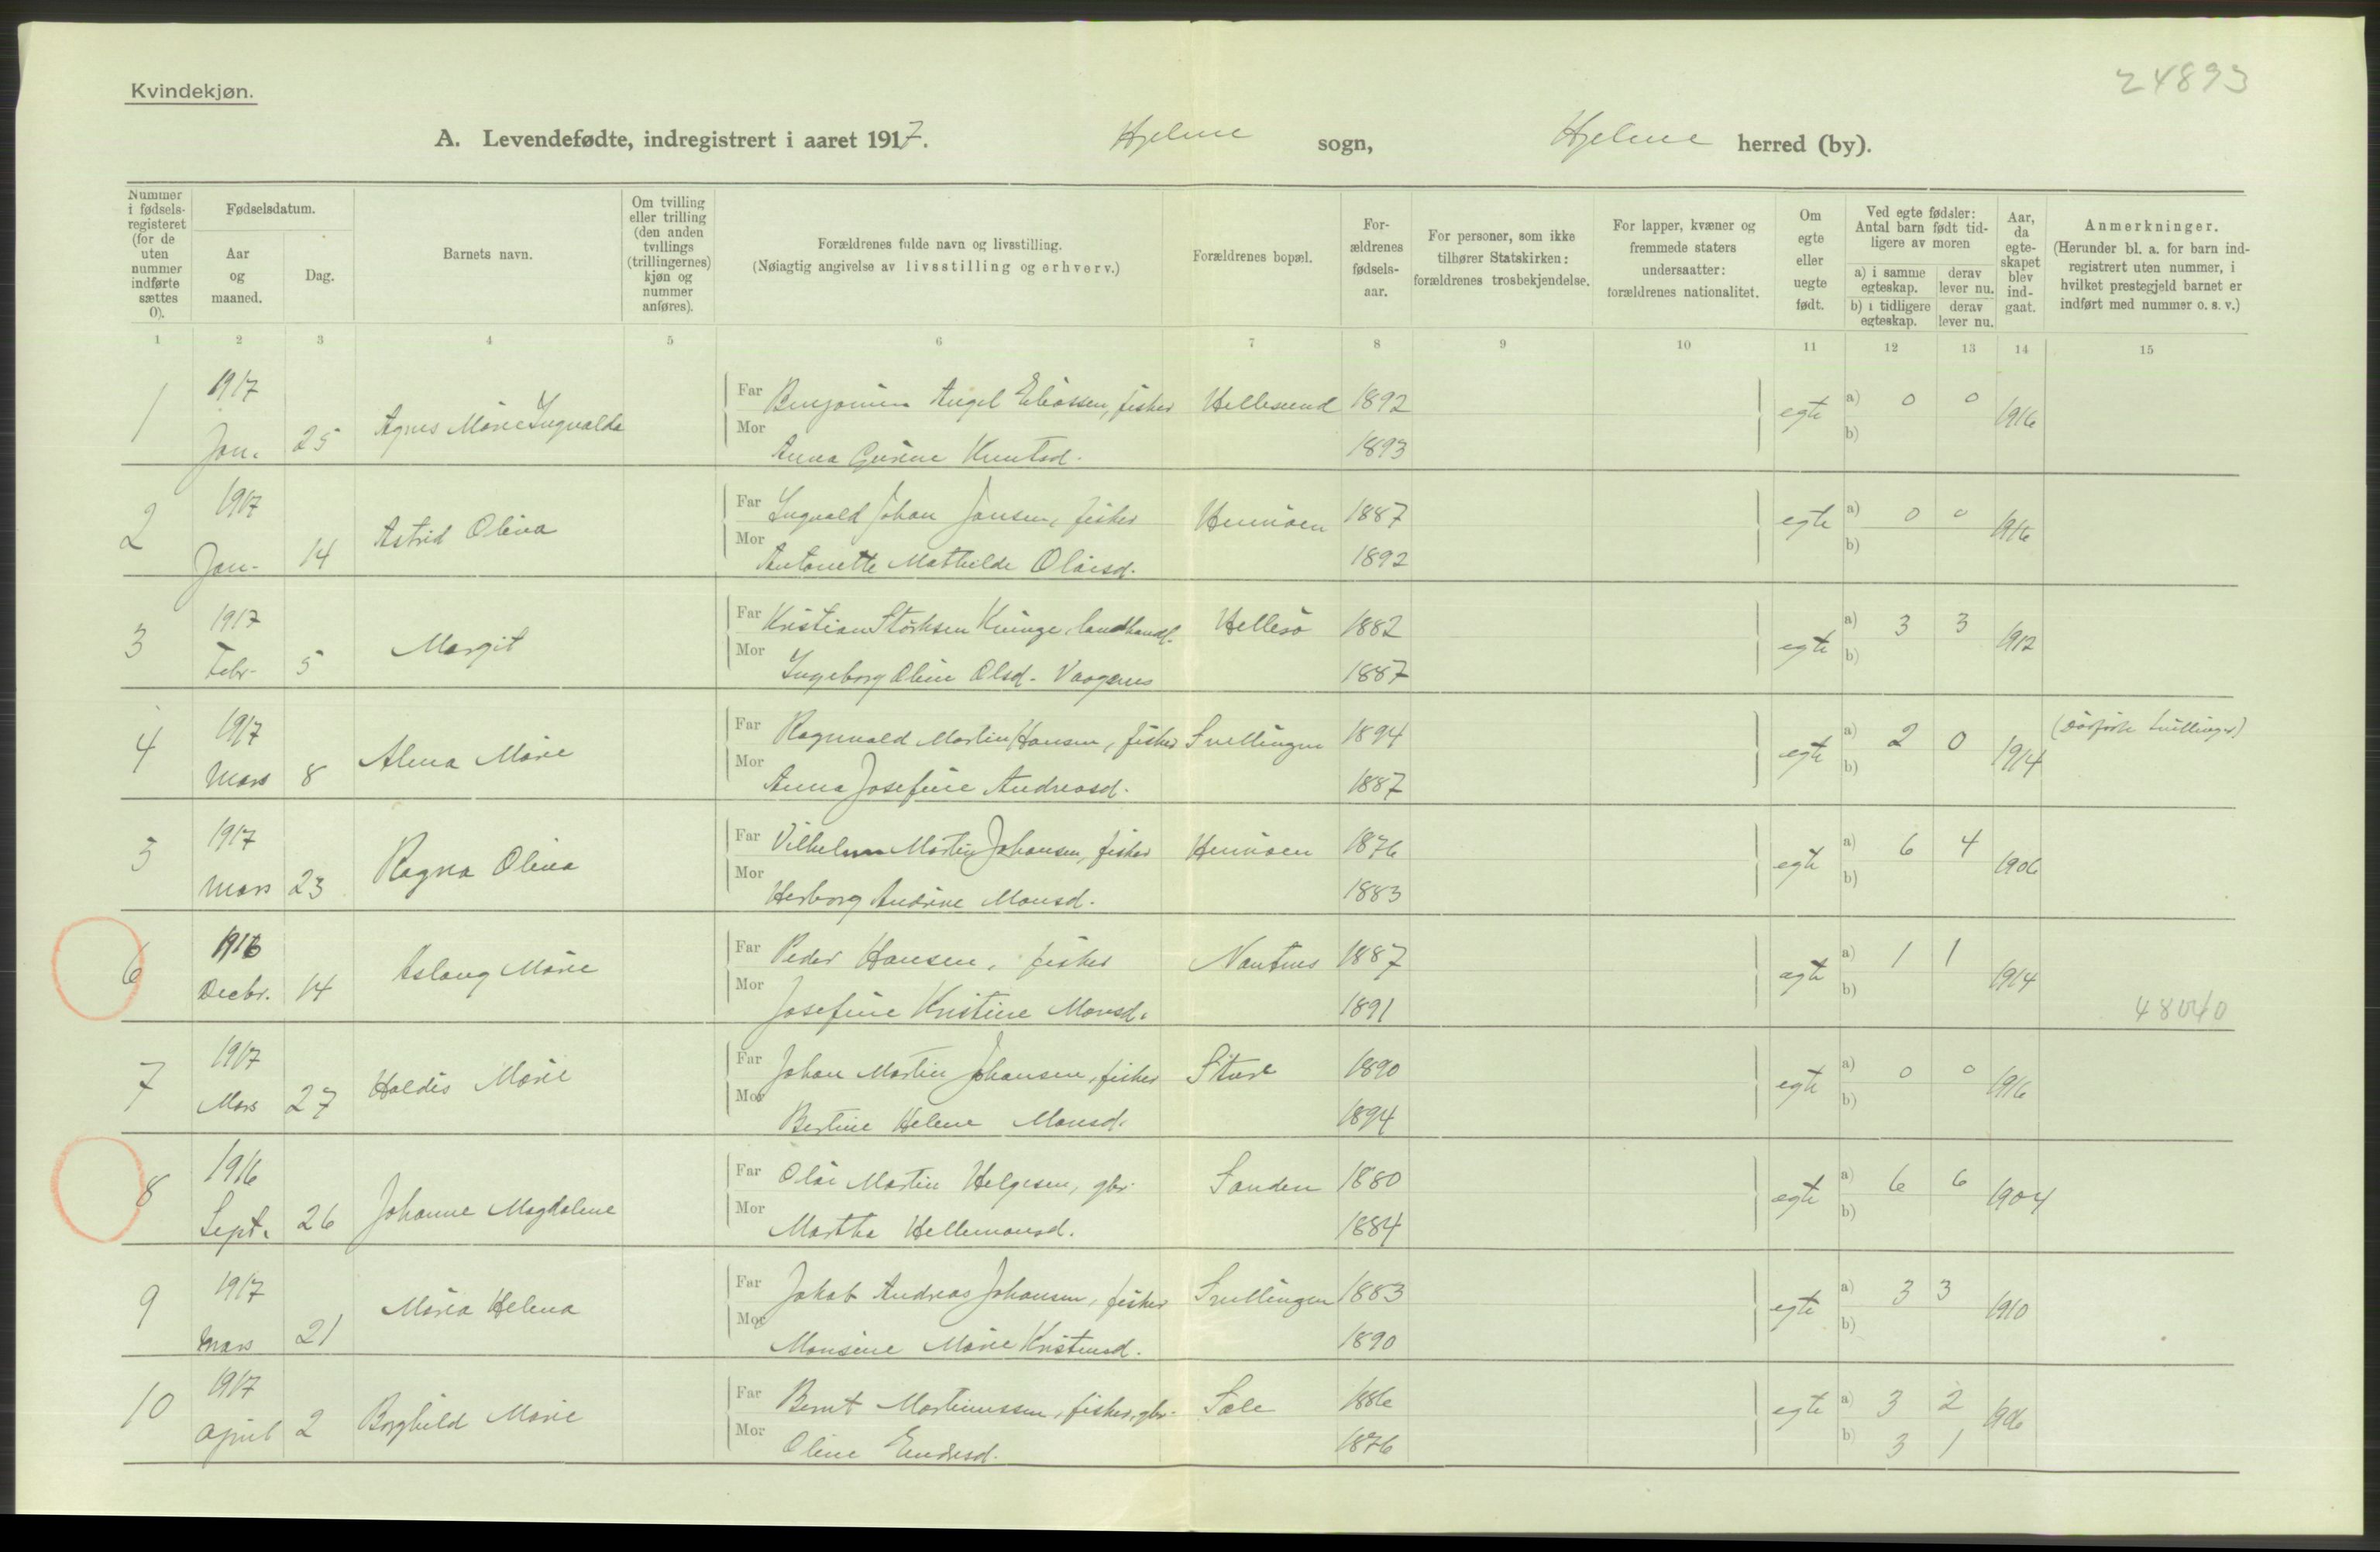 24893
Kvindekjøn.
A. Levendefødte, indregistrert i aaret 1917. Hjelme sogn, Hjelme herred (by).
Nummer i fødsels-registeret (for de uten nummer indførte sættes 0).
Fødselsdatum.
Aar og maaned.
Dag.
Barnets navn.
Om tvilling eller trilling (den anden tvillings (trillingernes) kjøn og nummer anføres).
Forældrenes fulde navn og livsstilling.
(Nøiagtig angivelse av livsstilling og erhverv.)
Forældrenes bopæl.
For-ældrenes fødsels-aar.
For personer, som ikke tilhører Statskirken: forældrenes trosbekjendelse.
For lapper, kvæner og fremmede staters undersaatter: forældrenes nationalitet.
Om egte eller uegte født.
Ved egte fødsler: Antal barn født tid-ligere av moren
a) i samme egteskap. derav lever nu.
b) i tidligere egteskap. derav lever nu.
Aar, da egte-skapet blev ind-gaat.
Anmerkninger.
(Herunder bl. a. for barn ind-registrert uten nummer, i hvilket prestegjeld barnet er indført med nummer o. s. v.)
1 2 3 4 5 6 7 8 9 10 11 12 13 14 15
1 1917 Jan. 25 Agnes Marie Ingvalda
Far Benjamin Angel Eliassen, fisker Hellesund 1892 egte a) 0 0 1916
Mor Anna Gurine Knutsd. 1893 b)
2 1917 Jan. 14 Astrid Oliva
Far Ingvald Johan Jansen, fisker Hernøen 1887 egte a) 0 0 1916
Mor Antonette Mathilde Olaisd. 1892 b)
3 1917 Febr. 5 Margit
Far Kristian Størksen Kvinge, landhandl. Hellesø 1882 egte a) 3 3 1912
Mor Ingeborg Oline Olsd. Vaagenes 1887 b)
4 1917 Mars 8 Alma Marie
Far Ragnvald Martin Hansen, fisker Snellingen 1894 egte a) 2 0 1914 (dødfødte tvillinger)
Mor Anna Josefine Andreasd. 1887 b)
5 1917 Mars 23 Ragna Oliva
Far Vilhelm Martin Johansen, fisker Hernøen 1876 egte a) 6 4 1906
Mor Herborg Andrine Monsd. 1883 b)
6 1916 Decbr. 14 Aslaug Marie
Far Peder Hansen, fisker Nautnes 1887 egte a) 1 1 1914
Mor Josefine Kristine Monsd. 1891 b) 48040
7 1917 Mars 27 Haldis Marie
Far Johan Martin Johansen, fisker Sture 1890 egte a) 0 0 1916
Mor Bertine Helene Monsd. 1894 b)
8 1916 Sept. 26 Johanne Magdalene
Far Olai Martin Helgesen, gbr. Sanden 1880 egte a) 6 6 1904
Mor Martha Hellemonsd. 1884 b)
9 1917 Mars 21 Maria Helena
Far Jakob Andreas Johansen, fisker Snellingen 1883 egte a) 3 3 1910
Mor Monsine Marie Kristensd. 1890 b)
10 1917 April 2 Borghild Marie
Far Bernt Martinussen, fisker, gbr. Sæle 1886 egte a) 3 2 1906
Mor Oline Endresd. 1876 b) 3 1